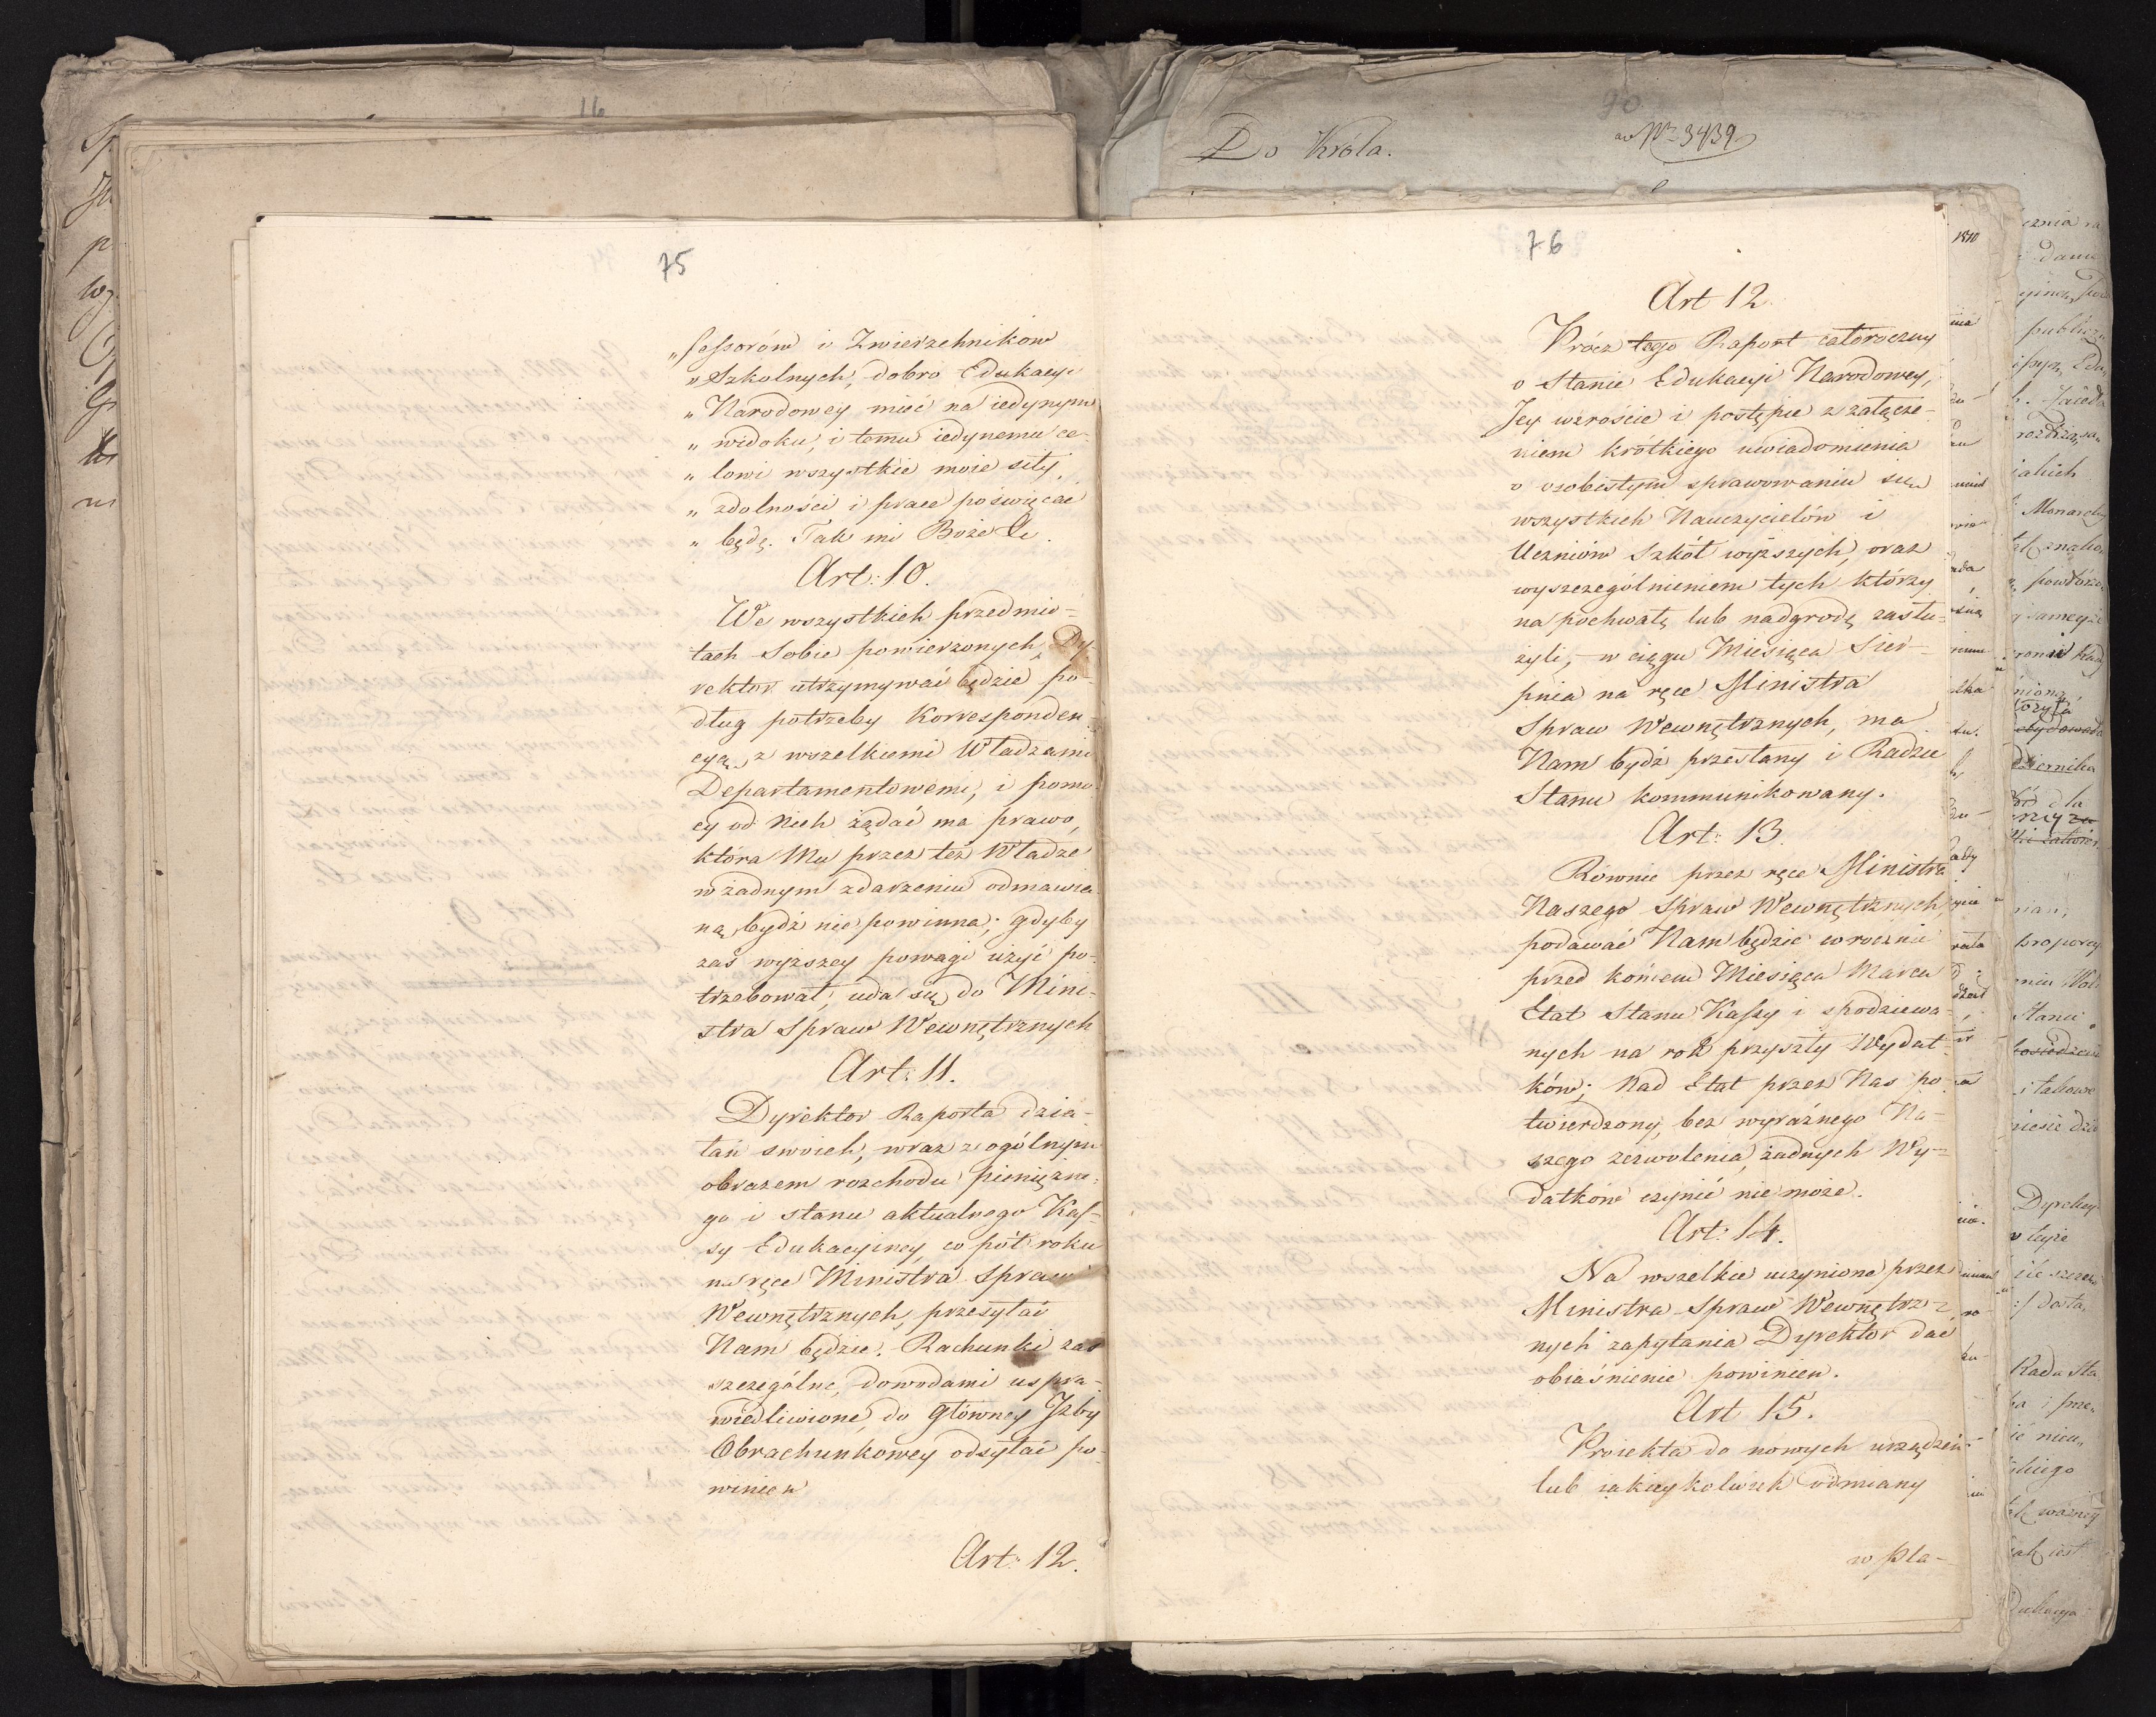 16
75
„fessorów i Zwierzchników
„Szkolnych, dobro Edukacyi
„Narodowey mieć na iedynym
„widoku, i temu iedynemu ce-
„lowi wszystkie moie siły,
„zdolności i prace poświęcać
„będę. Tak mi Boże &c.
Art: 10.
We wszystkich przedmio-
tach Sobie powierzonych, Dy-
rektor utrzymywać będzie po-
dług potrzeby Korresponden-
cyą, z wszelkiemi Władzami
Departamentowemi, i pomo-
cy od Nich żądać ma prawo,
która Mu przez też Władze
w żadnym zdarzeniu odmawia-
ną bydź nie powinna; gdyby
zaś wyższey powagi użyć po-
trzebował, uda się do Mini-
stra Spraw Wewnętrznych
Art: 11.
Dyrektor Raporta dzia-
łań swoich, wraz z ogólnym
obrazem rozchodu pienięźne-
go i stanu aktualnego Kas-
sy Edukacyiney, co pół roku
na ręce Ministra Spraw
Wewnętrznych, przesyłać
Nam będzie. Rachunki zaś
szczególne, dowodami uspra-
wiedliwione, do Główney Izby
Obrachunkowey odsyłać po-
winien
Art: 12.
90
Do Króla.
ad Nr 3439
76
Art 12.
Prócz tego Raport całoroczny
o Stanie Edukacyi Narodowey,
Jey wzroście i postępie z załącze-
niem krótkiego uwiadomienia
o osobistym sprawowaniu się
wszystkich Nauczycielów i
Uczniów Szkół wyższych, oraz
wyszczególnieniem tych którzy
na pochwałę lub nadgrodę zasłu-
żyli, w ciągu Miesiąca Sier-
pnia na ręce Ministra
Spraw Wewnętrznych, ma
Nam bydź przesłany i Radzie
Stanu kommunikowany.
Art: 13.
Równie przez ręce Ministra
Naszego Spraw Wewnętrznych,
podawać Nam będzie corocznie
przed końcem Miesiąca Marca
Etat Stanu Kassy i spodziewa-
nych na rok przyszły Wydat-
ków; Nad Etat przez Nas po-
twierdzony, bez wyraźnego Na-
szego zezwolenia, żadnych Wy-
datków czynić nie może.
Art: 14.
Na wszelkie uczynione przez
Ministra Spraw Wewnętrz-
nych zapytania Dyrektor dać
obiaśnienie powinien.
Art 15.
Proiekta do nowych urządzeń
lub iakieykolwiek odmiany
w Pla-
1810
Monarchy
Stanu
Dyrekcy
Rada Sta